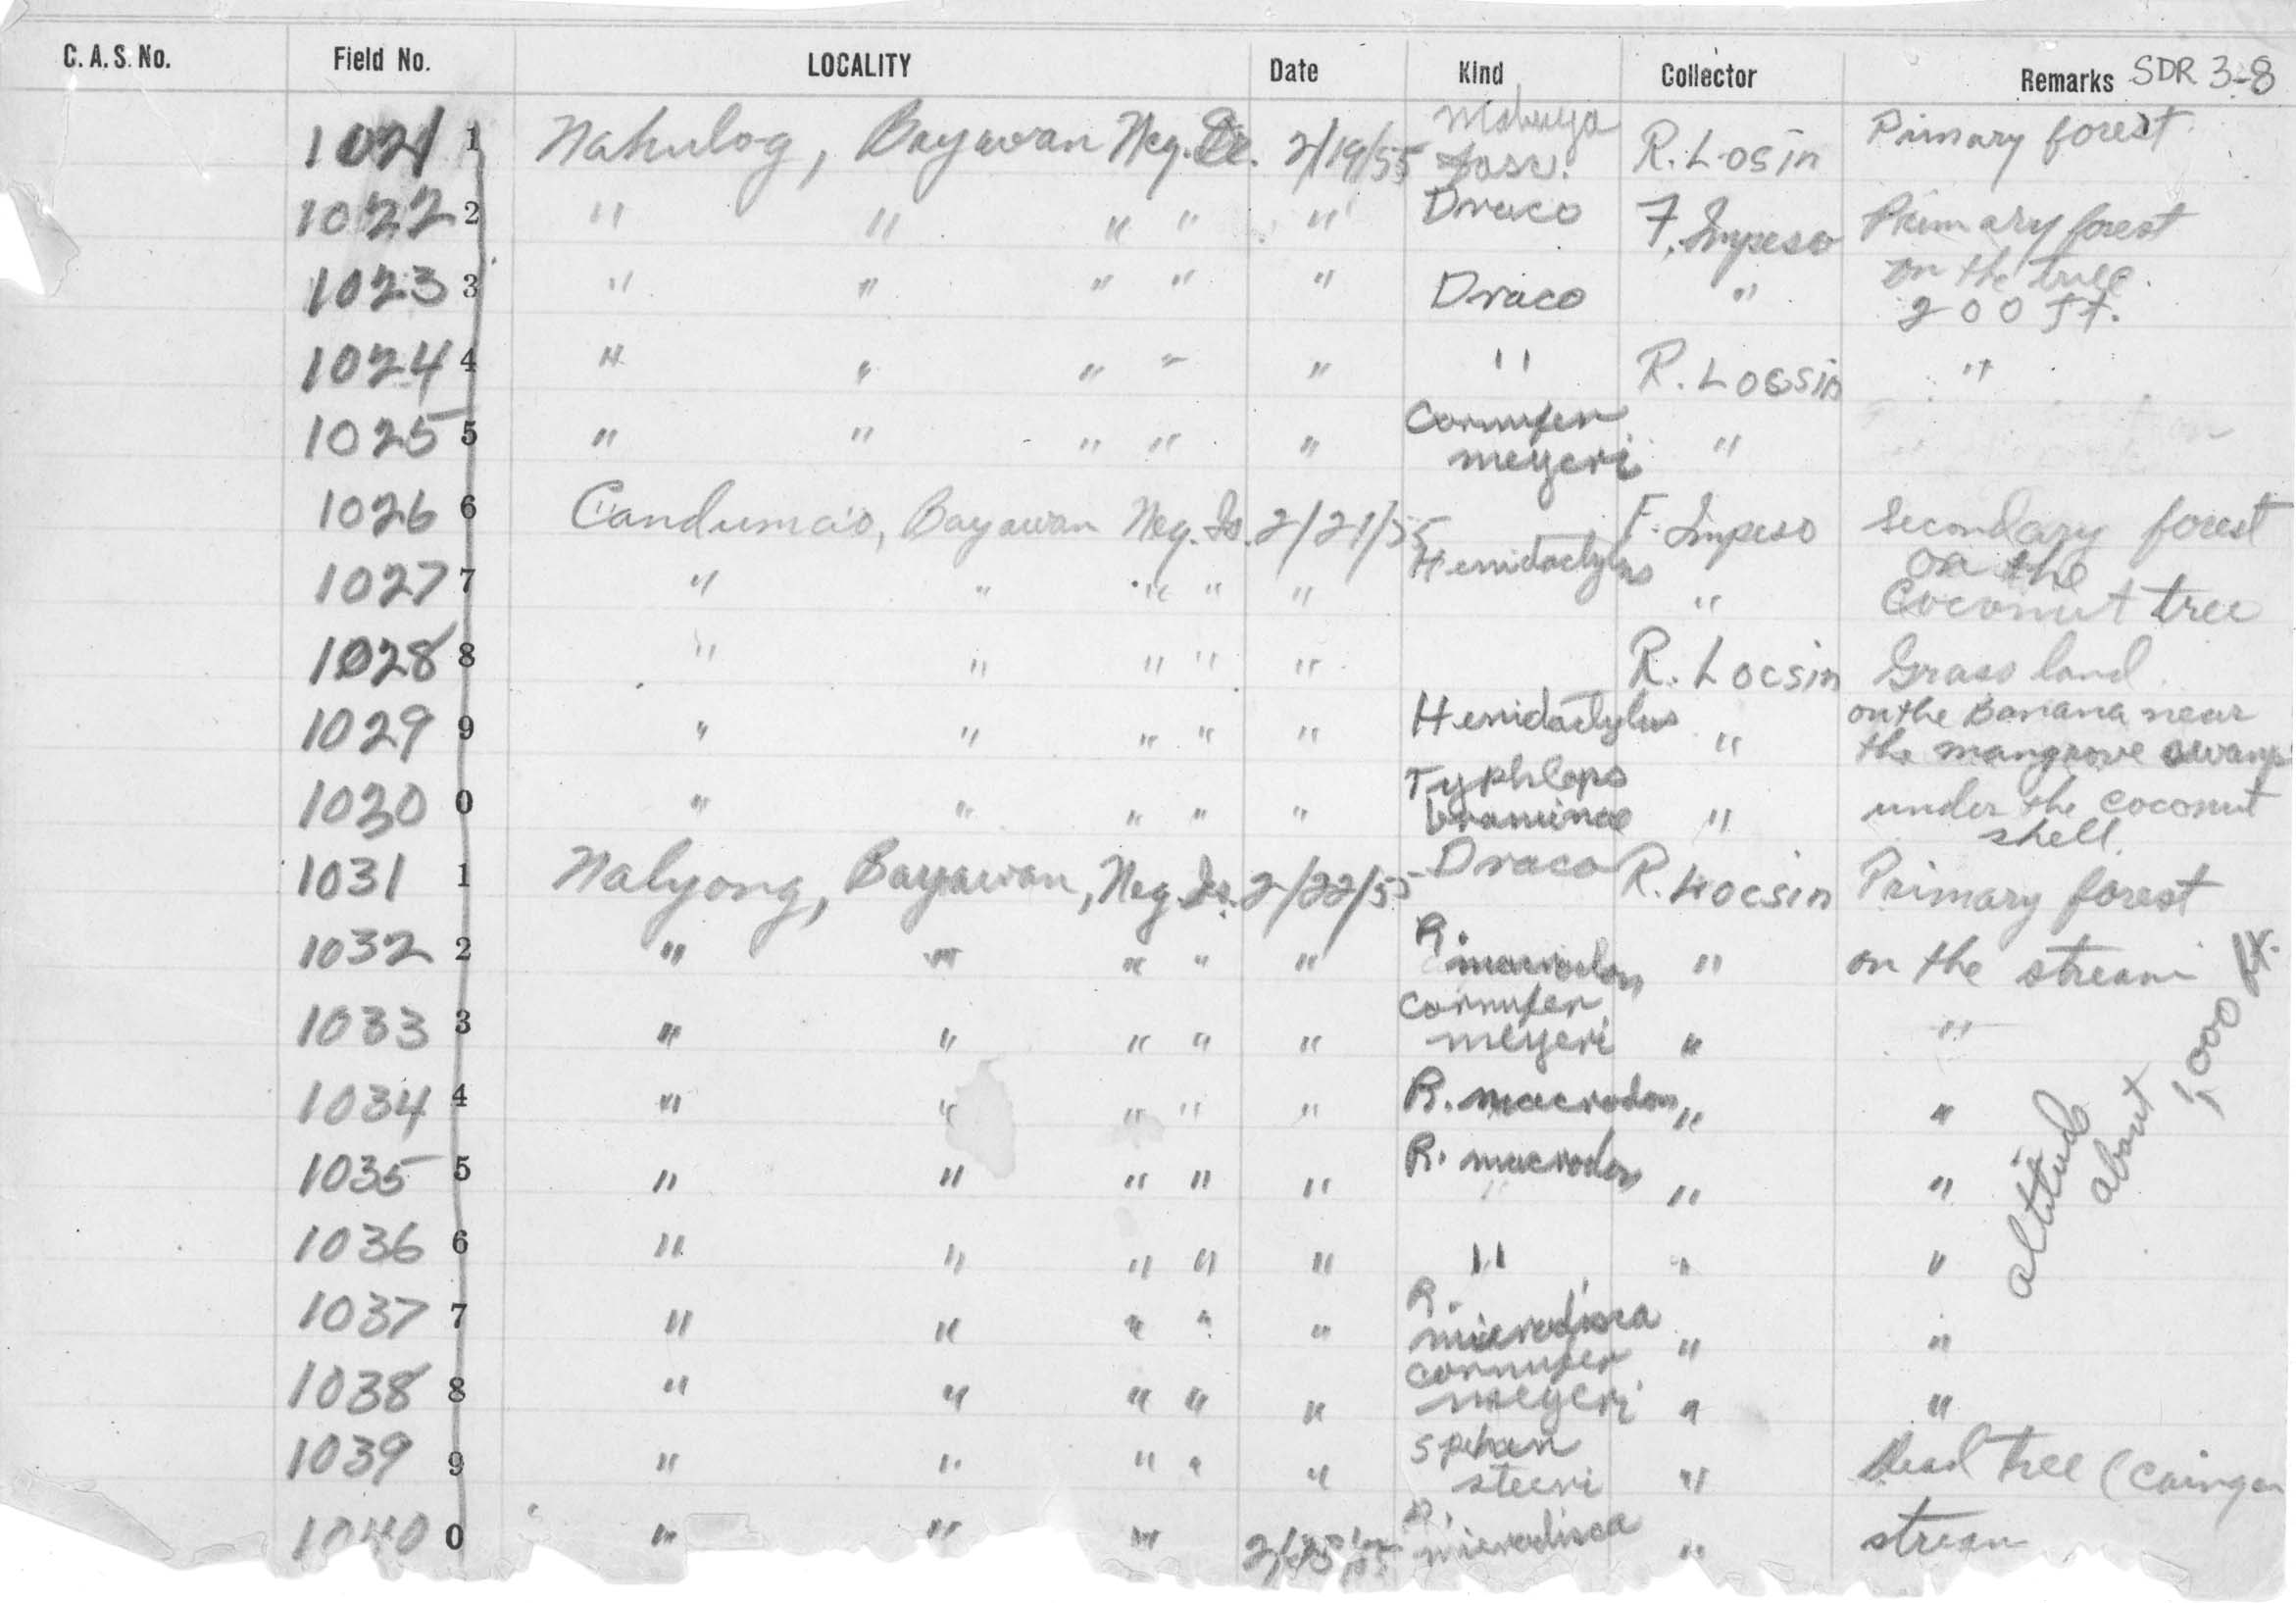 C. A. S. No. Field No. LOCALITY Date Kind Collector Remarks SDR 3-8
1021 1 Nahulog, Bayawan Neg. Or. 2/19/55 Mabuya R. Losin Primary forest
1022 2 " " " " " Draco F. Impeso Primary forest
on the tree
1023 3 " " " " " Draco " 200 ft.
1024 4 " " " " " " R. Locsin "
1025 5 " " " " " Cornufer meyeri "
1026 6 Candumao, Bayawan Neg. Is. 2/21/55 F. Impeso Secondary forest
on the
1027 7 " " " " " Hemidactylus " Coconut tree
1028 8 " " " " " R. Locsin Grass land
1029 9 " " " " " Hemidactylus " on the Banana near
the mangrove swamp
1030 0 " " " " " Typhlops braminae " under the coconut
shell.
1031 1 Nalyong, Bayawan, Neg. Is. 2/22/55 Draco R. Locsin Primary forest
1032 2 " " " " " R. macrodon " on the stream
1033 3 " " " " " Cornufer meyeri " "
1034 4 " " " " " R. macrodon " "
1035 5 " " " " " R. macrodon " "
1036 6 " " " " " " " "
1037 7 " " " " " R. microdisca " "
1038 8 " " " " " Cornufer meyeri " "
1039 9 " " " " " Sphen steeri " Dead tree (Caingan
1040 0 " " " R. microdisca " stream
altitude about 1,000 ft.